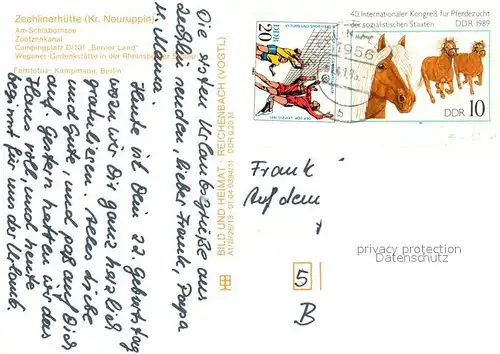 Zechlinerhütte (Kr. Neuruppin)
Am Schlabornsee
Zootzenkanal
Campingplatz D/101 „Beiner Land"
Wegener-Gedenkstätte in der Rheinsberger
Farbfotos: Kampmann, Berlin
BILD UND HEIMAT · REICHENBACH (VOGTL)
A1/B/26/13 01 04 0394/11 DDR 0,20 M
Die ersten Urlaubsgrüße aus
senden, lieber Frank, Papa
u. Mama.
Heute ist Dein 22. Geburtstag
wozu wir Dir ganz herzlich
gratulieren. Alles Liebe
und Gute, und paß auf Dich
auf. Gestern hatten wir das
Haus voll, und heute
beginnt für uns der Urlaub.
DDR
20
40. Internationaler Kongreß für Pferdezucht
der sozialistischen Staaten
DDR 1989
DDR 10
1956
b
Frank
Auf dem
5
B
privacy protection
Datenschutz